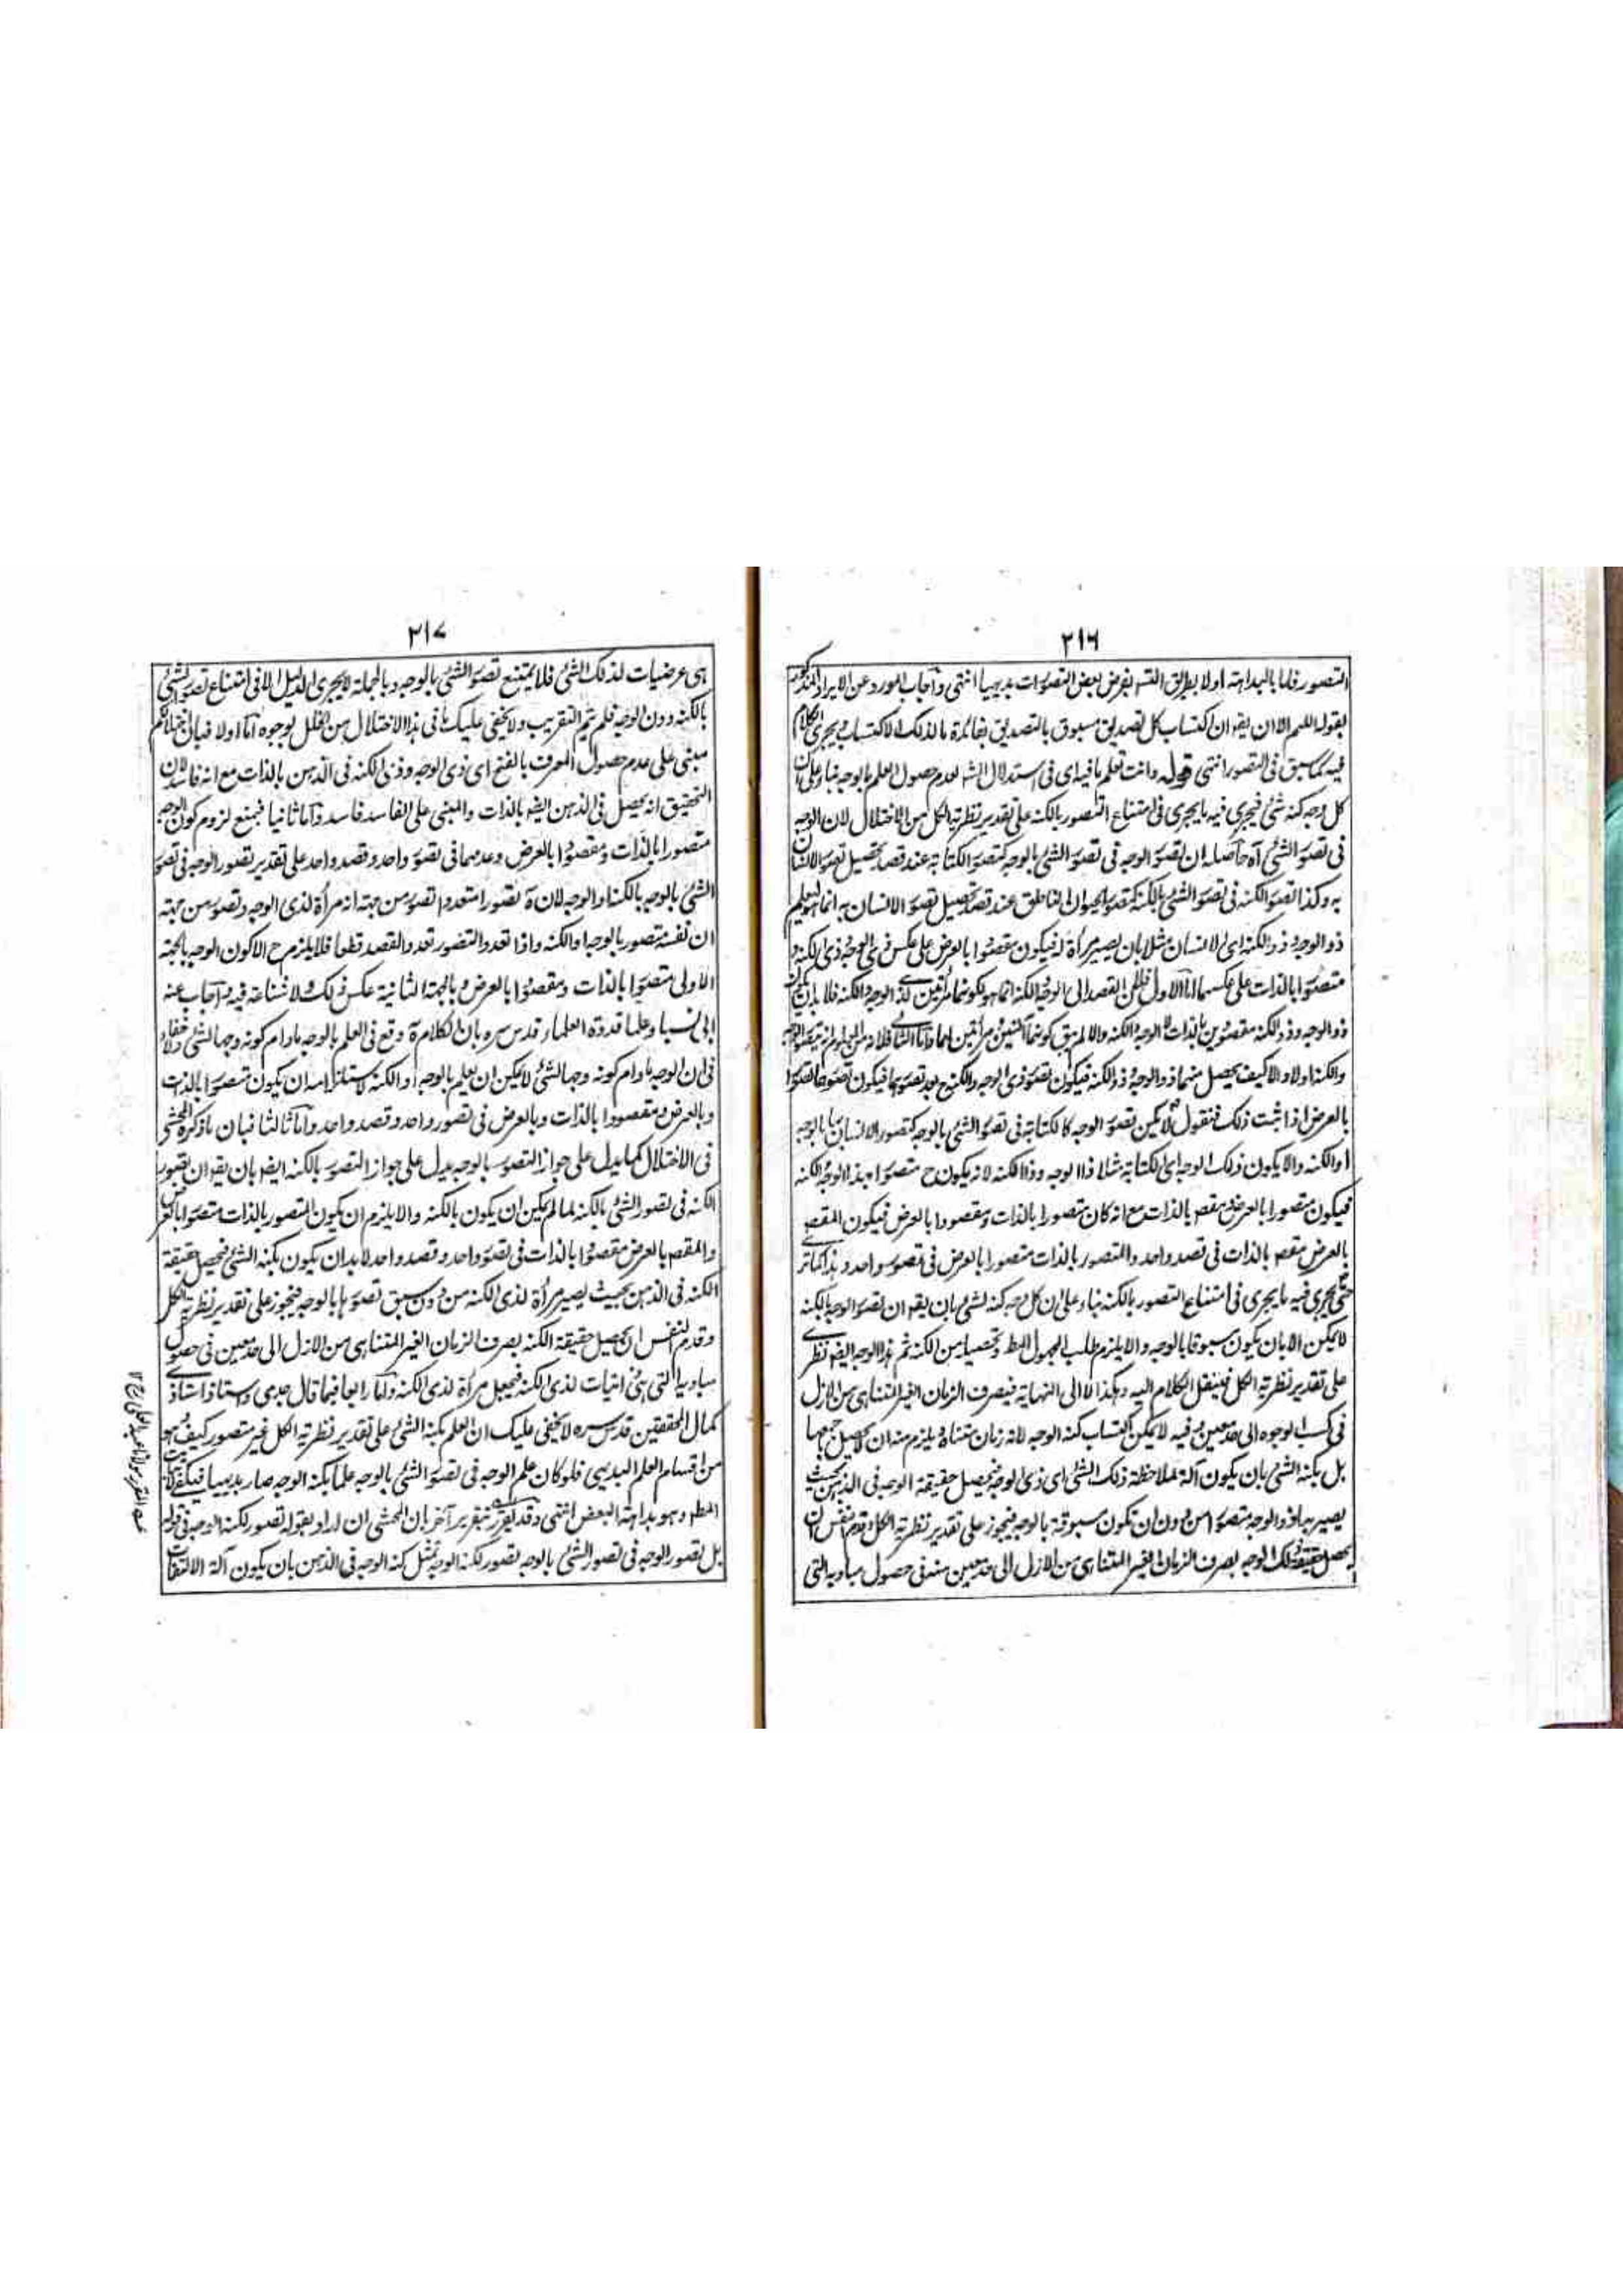 ٢١٦
التصور فلما بالبداهة اولا بطريق الشه لغرض بعض التصورات بديهيا انتهى وآجاب المورد عن الايراد المذكور
بقوله اللهم الا ان يقو ان اكتساب كل تصديق مسبوق بالتصديق بفائدة ما لذلك الاكتساب ويجرى الكلام
فيه كما سبق فى التصور انتهى قوله وانت تعلم ما فيه اى فى استدلال الشه لعدم حصول العلم بالوجه بناء على ان
كل وجه كنه شئ فيجرى فيه ما يجرى فى امتناع التصور بالكنه على تقدير نظرية الكل من الاختلال لان الوجه
فى تصور الشئ آه حاصله ان تصور الوجه فى تصور الشئ بالوجه كتصور الكتابة عند قصد تحصيل تصور الانسان
به وكذا تصور الكنه فى تصور الشئ بالكنه كتصور الحيوان الناطق عند قصد تحصيل تصور الانسان به انما هو ليعلم
ذو الوجه وذو الكنه اى الانسان مثلا بان يصير مرآة له فيكون مقصودا بالعرض على عكس ذى الوجه وذى الكنه و
متصورا بالذات على عكسهما اما الاول فلان القصد الى الوجه والكنه انما هو لكونهما مرآتين لذى الوجه والكنه فلا بد ان يكون
ذو الوجه وذو الكنه مقصودين بالذات لا الوجه والكنه والا لم يبق كونهما آلتين ومرآتين لهما واما الثانى فلانه
والكنه اولا والا كيف يحصل منهما ذو الوجه وذو الكنه فيكون تصور ذى الوجه والكنه بعد تصورهما فيكون تصورهما تصورا
بالعرض اذا ثبت ذلك فنقول لا يمكن تصور الوجه كالكتابة فى تصور الشئ بالوجه كتصور الانسان بها بالوجه
او الكنه والا يكون ذلك الوجه اى الكتابة مثلا ذا الوجه وذا الكنه لانه يكون ح متصورا بهذا الوجه والكنه
فيكون متصورا بالعرض ومقصه بالذات مع انه كان متصورا بالذات ومقصودا بالعرض فيكون المقصه
بالعرض مقصه بالذات فى قصد واحد والمتصور بالذات متصورا بالعرض فى تصور واحد وهذا كما ترى
حتى يجرى فيه ما يجرى فى امتناع التصور بالكنه بناء على ان كل وجه كنه لشئ بان يقو ان تصور الوجه بالكنه
لا يمكن الا بان يكون مسبوقا بالوجه والا يلزم طلب المجهول المطه وتحصيله من الكنه ثم هذا الوجه ايضه نظرى
على تقدير نظرية الكل فينقل الكلام اليه وهكذا الى الا نهاية فيصرف الزمان الغير المتناهى من الازل
فى كسب الوجوه الى حد معين وفيه لا يمكن اكتساب كنه الوجه لانه زمان متناه ويلزم منه ان لا يحصل وجه ما
بل بكنه الشئ بان يكون آلة لملاحظة ذلك الشئ اى ذى الوجه فيحصل حقيقة الوجه فى الذهن بحيث
يصير بها ذو الوجه متصورا من دون ان تكون مسبوقة بالوجه فيجوز على تقدير نظرية الكل وقدم النفس ان
يحصل حقيقة ذلك الوجه بصرف الزمان الغير المتناهى من الازل الى حد معين منه فى حصول مباديه التى
٢١٧
هى عرضيات لذلك الشئ فلا يمتنع تصور الشئ بالوجه وبالجملة لا يجرى الدليل الا فى امتناع تصور الشئ
بالكنه دون الوجه فلم يتم التقريب ولا يخفى عليك ما فى هذا الاختلال من الخلل بوجوه اما اولا فبان
مبنى على عدم حصول المعرف بالفتح اى ذى الوجه وذى الكنه فى الذهن بالذات مع انه فاسد لان
التحقيق انه يحصل فى الذهن ايضه بالذات والمبنى على الفاسد فاسد واما ثانيا فبمنع لزوم كون الوجه
متصورا بالذات ومقصودا بالعرض وعدمهما فى تصور واحد وقصد واحد على تقدير تصور الوجه فى تصور
الشئ بالوجه بالكنه او الوجه لان ة تصور امتعددا تصور من جهة انه مرآة لذى الوجه وتصور من جهة
ان نفسه متصور بالوجه او الكنه واذا تعدد التصور تعدد القصد قطعا فلا يلزم ح الا كون الوجه بالجهة
الاولى متصورا بالذات ومقصودا بالعرض وبالجهة الثانية عكس ذلك ولا شناعة فيه وآجاب عنه
ابى نسبا وعلما قدوة العلماء قدس سره بان الكلام ة وقع فى العلم بالوجه ما دام كونه وجها لشئ ولا خفاء
فى ان الوجه ما دام كونه وجها لشئ لا يمكن ان يعلم بالوجه او الكنه لاستلزامه ان يكون متصورا بالذات
وبالعرض ومقصودا بالذات وبالعرض فى تصور واحد وقصد واحد واما ثالثا فبان ما ذكره المحشى
فى الاختلال كما يدل على جواز التصور بالوجه يدل على جواز التصور بالكنه ايضه بان يقو ان تصور
الكنه فى تصور الشئ بالكنه لما لم يمكن ان يكون بالكنه والا يلزم ان يكون المتصور بالذات متصورا بالعرض
والمقصه بالعرض مقصودا بالذات فى تصور واحد وقصد واحد لا بد ان يكون بكنه الشئ فيحصل حقيقة
الكنه فى الذهن بحيث يصير مرآة لذى الكنه من دون سبق تصورها بالوجه فيجوز على تقدير نظرية الكل
وقدم النفس ان يحصل حقيقة الكنه بصرف الزمان الغير المتناهى من الازل الى حد معين فى حصول
مباديه التى هى ذاتيات لذى الكنه فيجعل مرآة لذى الكنه واما رابعا فبما قال جدى واستاذ استاذى
كمال المحققين قدس سره لا يخفى عليك ان العلم بكنه الشئ على تقدير نظرية الكل غير متصور كيف وهو
من اقسام العلم البديهى فلو كان علم الوجه فى تصور الشئ بالوجه علما بكنه الوجه صار بديهيا فيكفى لاثبات
المطه وهو بداهة البعض انتهى وقد يقرر بتقرير آخر بان المحشى ان اراد بقوله تصور لكنه الوجه فى قوله
بل تصور الوجه فى تصور الشئ بالوجه تصور لكنه الوجه تمثل كنه الوجه فى الذهن بان يكون آلة الالتفات